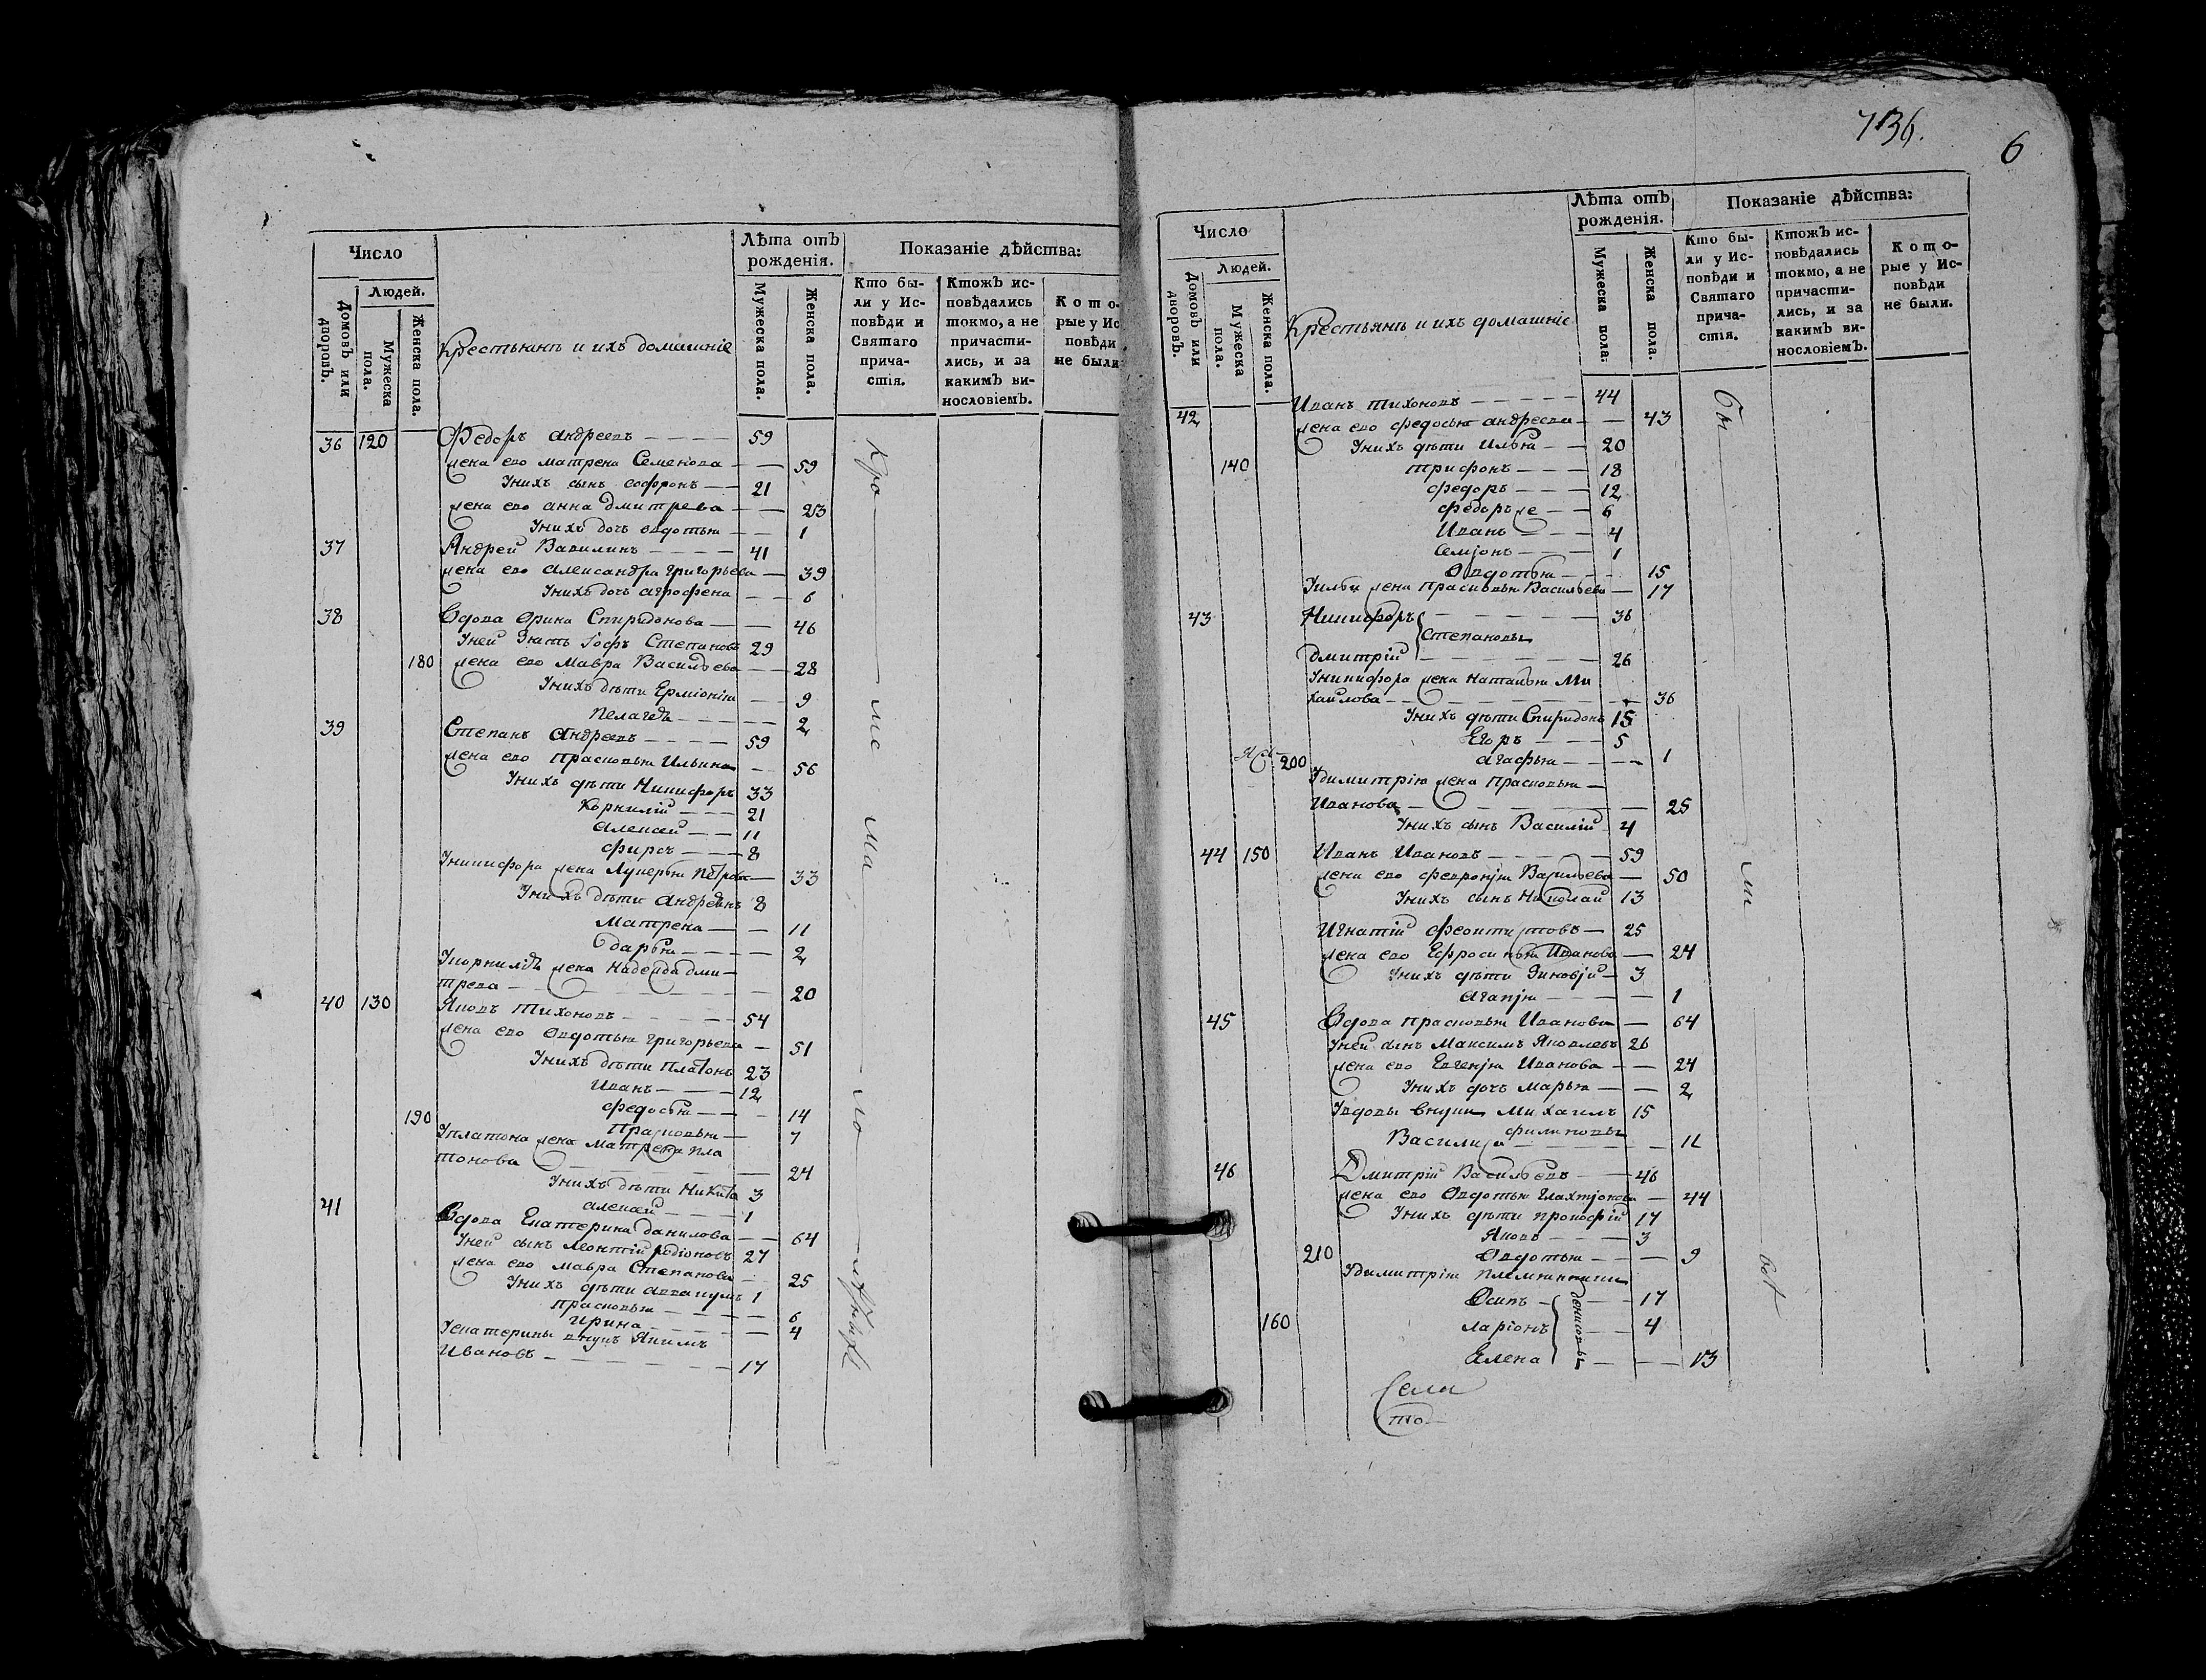 Число
Людей.
Домовъ или дворовъ.
Мужеска пола.
Женска пола.
Крестьянъ и ихъ домашніе
Лѣта отъ рожденія.
Мужеска пола.
Женска пола.
Показаніе дѣйства:
Кто были у Исповѣди и Святаго причастія.
Ктожъ исповѣдались токмо, а не причастились, и за какимъ винословіемъ.
Которые у Исповѣди не были
36 120 Федоръ андреевъ 59
жена ево матрена Семенова 59
Унихъ сынъ софронъ 21
жена ево анна дмитрева 23
Унихъ дочь овдотья 1
37 Андрей Вавилинъ 41
жена ево александра григорьева 39
Унихъ дочь агрофена 6
38 Вдова Орина Спиридонова 46
Уней Зять Степановъ 29
180 жена ево мавра Васильева 28
Унихъ дѣти Ерміонія 9
пелагея 2
39 Степанъ андреевъ 59
жена ево прасковья Ильина 56
Унихъ дѣти Никифоръ 33
Корнилій 21
алексей 11
фирсъ 8
Уникифора жена Лукерья петрова 33
Унихъ дѣти андреянъ 8
матрена 11
дарья 2
Укорнилія жена Надежда дми
трева 20
40 130 Яковъ тихоновъ 54
жена ево Овдотья григорьева 51
Унихъ дѣти платонъ 23
Иванъ 12
федосья 14
190 прасковья 7
Уплатона жена матрена пла
тонова 24
Унихъ дѣти Никита 3
алексей 1
41 Вдова Екатерина данилова 64
Уней сынъ леонтій родіоновъ 27
жена ево мавра Степанова 25
Унихъ дѣти аввакумъ 1
прасковья 6
ирина 4
Уекатерины внукъ Якимъ
Ивановъ 17
7136.
6
Число
Людей.
Домовъ или дворовъ.
Мужеска пола.
Женска пола.
Крестьянъ и ихъ домашніе
Лѣта отъ рожденія.
Мужеска пола.
Женска пола.
Показаніе дѣйства:
Кто были у Исповѣди и Святаго причастія.
Ктожъ исповѣдались токмо, а не причастились, и за какимъ винословіемъ.
Которые у Исповѣди не были.
42 Иванъ тихоновъ 44
жена ево федосья андреева 43
Унихъ дѣти Илья 20
140 трифонъ 18
федоръ 12
федоръ же 6
Иванъ 4
семіонъ 1
Овдотья 15
Уильи жена прасковья Васильева 17
43 Никифоръ 36
Степановы
дмитрій 26
Уникифора жена наталья Ми
хаилова 36
Унихъ дѣти Спиридонъ 15
Егоръ 5
200 агафья 1
Удимитрія жена прасковья
Иванова 25
Унихъ сынъ Василій 4
44 150 Иванъ Ивановъ 59
жена ево февронія Васильева 50
Унихъ сынъ Николай 13
Игнатій феоктистовъ 25
жена ево Ефросинья Иванова 24
Унихъ дѣти Зиновій 3
агапія 1
45 Вдова прасковья Иванова 64
Уней сынъ Максимъ Яковлевъ 26
жена ево Евгенія Иванова 24
Унихъ дочь марья 2
Увдовы внуки михаилъ 15
филиповы
Василиса 11
46 Дмитрій Васильевъ 46
жена ево Овдотья Галахтіонова 44
Унихъ дѣти прокофій 17
Яковъ 3
210 Овдотья 9
Удимитрія племянники
Осипъ 17
160 ларіонъ 4
денисовы
Елена 13
Села